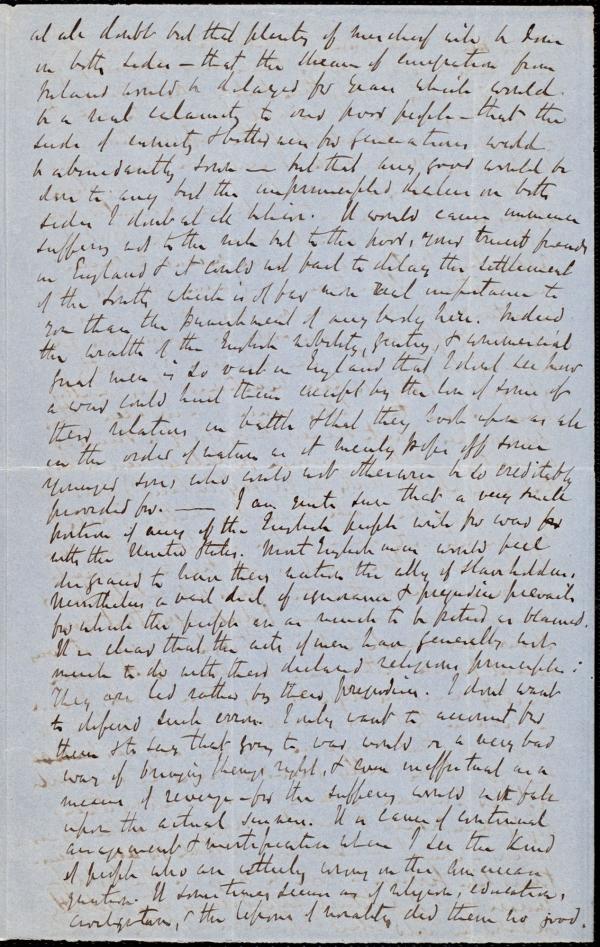 at all doubt but that plenty of mischief will be done
on both sides – that the stream of emigration from
Ireland would be delayed for years which would
be a real calamity to our poor people – that the
seeds of enmity & bitterness for generations would
be abundantly sown – but that any good would be
done to any but the unprincipled dealers on both
sides I don't at all believe. It would cause immense
suffering not to the rich but to the poor, your truest friends
in England & it could not fail to delay the settlement
of the South, which is of far more real importance to
you than the punishment of any body here. Indeed
the wealth of the English nobility, gentry, & commercial
great men is so vast in England that I don't see how
a war could hurt them except by the loss of some of
their relations in battle & that they look upon as all
in the order of nature as it merely steps off some
younger sons who could not otherwise be so creditably
provided for. — I am quite sure that a very small
portion of any of the English people wish for war
with the United States. Most Englishmen would feel
disgraced to have their nation the ally of slaveholders.
Nevertheless a vast deal of ignorance & prejudice prevails
for which the people are as much to be pitied as blamed.
It is clear that the acts of men have generally not
much to do with their declared religious principles:
They are led rather by their prejudices. I don't want
to defend such errors. I only want to account for
them & to say that going to war would be a very bad
way of bringing things right, & even ineffectual as a
means of revenge – for the suffering would not fall
upon the actual sinners. It is cause of continual
amazement & mortification when I see the kind
of people who are utterly wrong on the American
question. It sometimes seems as if religion, education,
civilization, & the lessons of morality did them no good.